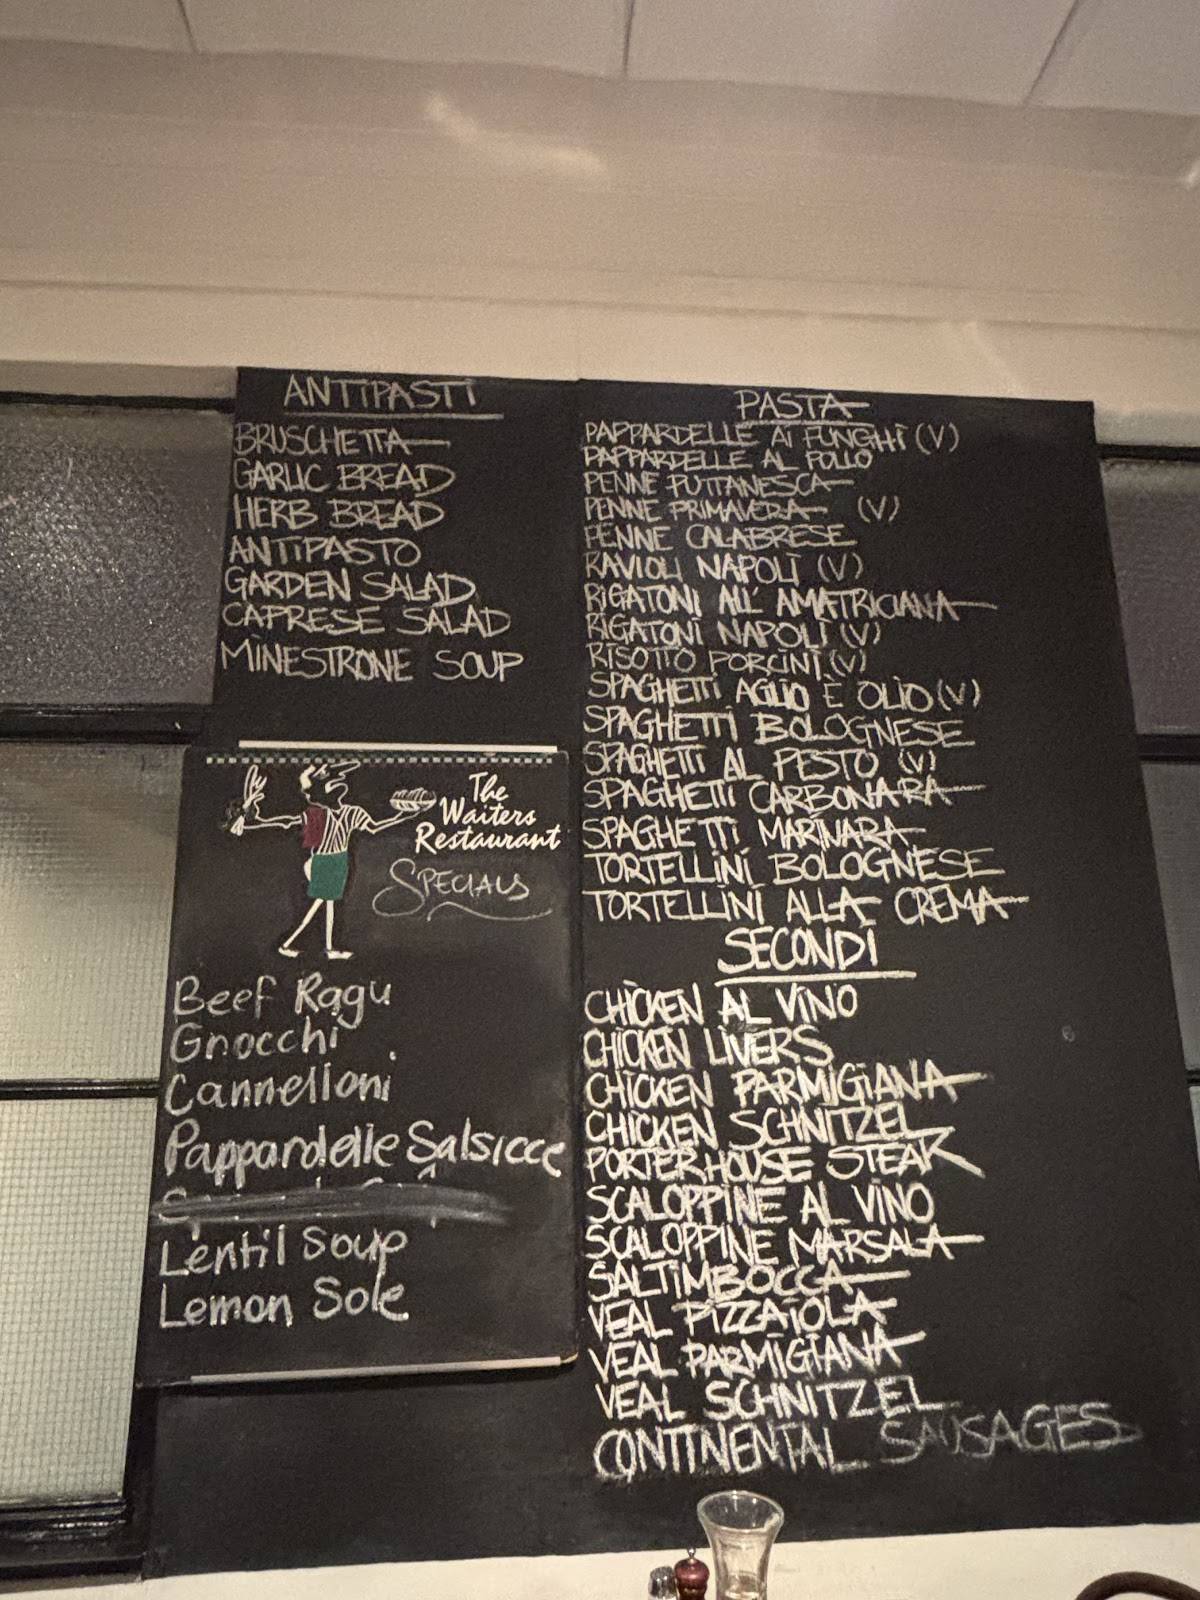 ANTIPASTI
BRUSCHETTA
GARLIC BREAD
HERB BREAD
ANTIPASTO
GARDEN SALAD
CAPRESE SALAD
MINESTRONE SOUP
The
Waiters
Restaurant
SPECIALS
Beef Ragu
Gnocchi
Cannelloni
Pappardelle Salsicce
Lentil Soup
Lemon Sole
PASTA
PAPPARDELLE AI FUNGHI (V)
PAPPARDELLE AL POLLO
PENNE PUTTANESCA
PENNE PRIMAVERA (V)
PENNE CALABRESE
RAVIOLI NAPOLI (V)
RIGATONI ALL' AMATRICIANA
RIGATONI NAPOLI (V)
RISOTTO PORCINI (V)
SPAGHETTI AGLIO È OLIO (V)
SPAGHETTI BOLOGNESE
SPAGHETTI AL PESTO (V)
SPAGHETTI CARBONARA
SPAGHETTI MARINARA
TORTELLINI BOLOGNESE
TORTELLINI ALLA CREMA
SECONDI
CHICKEN AL VINO
CHICKEN LIVERS
CHICKEN PARMIGIANA
CHICKEN SCHNITZEL
PORTERHOUSE STEAK
SCALOPPINE AL VINO
SCALOPPINE MARSALA
SALTIMBOCCA
VEAL PIZZAIOLA
VEAL PARMIGIANA
VEAL SCHNITZEL
CONTINENTAL SAUSAGES